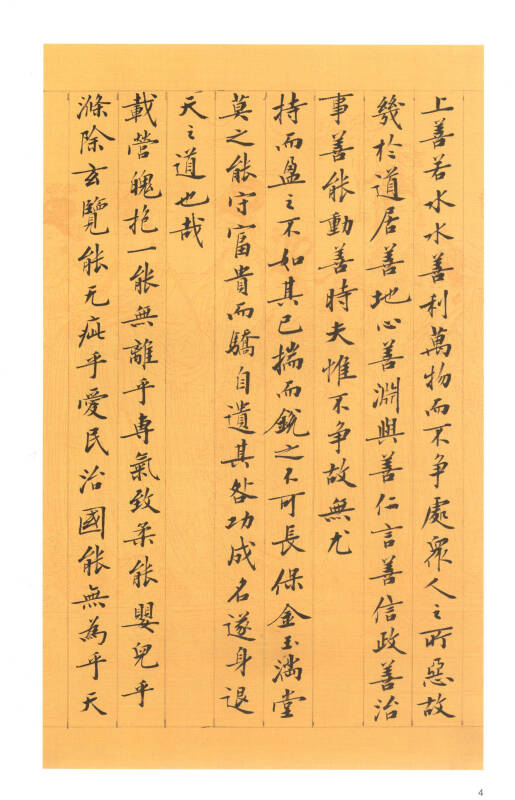 上善若水水善利萬物而不争處衆人之所惡故
幾於道居善地心善淵與善仁言善信政善治
事善能動善時夫惟不争故無尤
持而盈之不如其已揣而銳之不可長保金玉滿堂
莫之能守富貴而驕自遺其咎功成名遂身退
天之道也哉
載營魄抱一能無離乎專氣致柔能嬰兒乎
滌除玄覽能无疵乎愛民治國能無為乎天
4